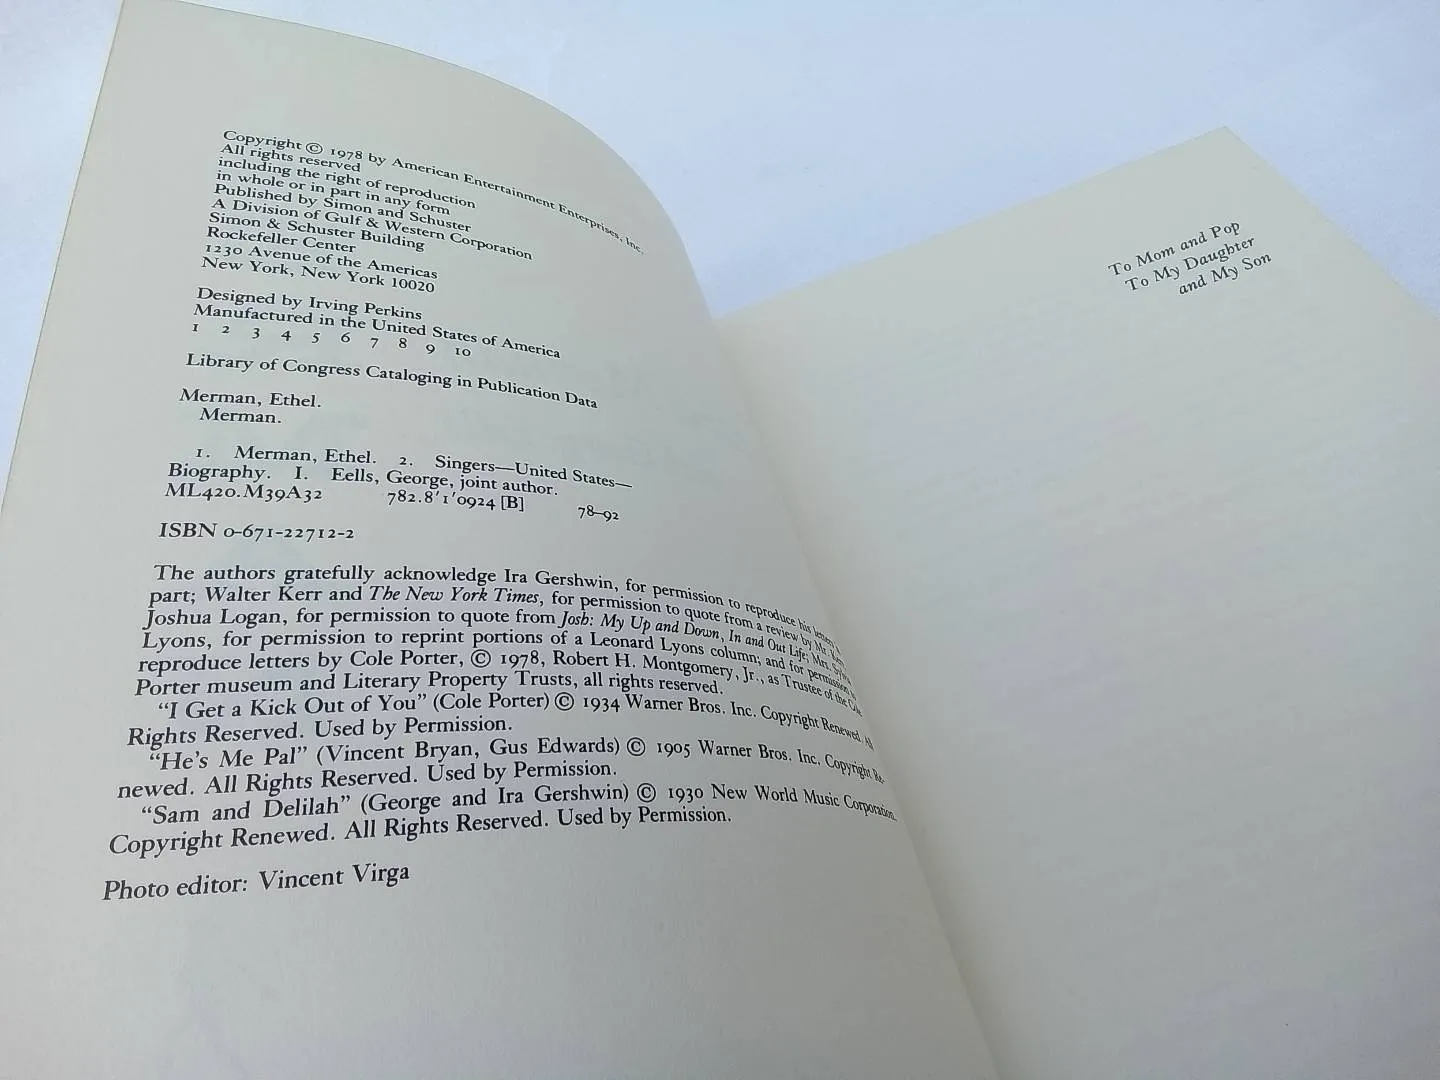 Copyright © 1978 by American Entertainment Enterprises, Inc.
All rights reserved
including the right of reproduction
in whole or in part in any form
Published by Simon and Schuster
A Division of Gulf & Western Corporation
Simon & Schuster Building
Rockefeller Center
1230 Avenue of the Americas
New York, New York 10020
Designed by Irving Perkins
Manufactured in the United States of America
1 2 3 4 5 6 7 8 9 10
Library of Congress Cataloging in Publication Data
Merman, Ethel.
Merman.
1. Merman, Ethel. 2. Singers—United States—
Biography. I. Eells, George, joint author.
ML420.M39A32 782.8'1'0924 [B] 78-92
ISBN 0-671-22712-2
The authors gratefully acknowledge Ira Gershwin, for permission to reproduce his letters
part; Walter Kerr and The New York Times, for permission to quote from a review by Mr. Kerr
Joshua Logan, for permission to quote from Josh: My Up and Down, In and Out Life; Mrs.
Lyons, for permission to reprint portions of a Leonard Lyons column; and for permission to
reproduce letters by Cole Porter, © 1978, Robert H. Montgomery, Jr., as Trustee of the Cole
Porter museum and Literary Property Trusts, all rights reserved.
"I Get a Kick Out of You" (Cole Porter) © 1934 Warner Bros. Inc. Copyright Renewed. All
Rights Reserved. Used by Permission.
"He's Me Pal" (Vincent Bryan, Gus Edwards) © 1905 Warner Bros. Inc. Copyright Re-
newed. All Rights Reserved. Used by Permission.
"Sam and Delilah" (George and Ira Gershwin) © 1930 New World Music Corporation.
Copyright Renewed. All Rights Reserved. Used by Permission.
Photo editor: Vincent Virga
To Mom and Pop
To My Daughter
and My Son